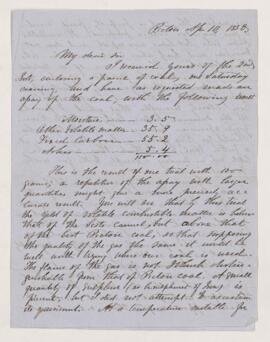 Pictou Ap. 10, 1858.
My dear Sir
I received yours of the 2nd
Inst, enclosing a parcel of coal, on Saturday
evening, and have as requested made an
assay of the coal, with the following result
Moisture 3.5
Other Volatile matter 35.9
Fixed Carbon 55.2
Ashes 5.4
100.00
This is the result of one trial with 100
grains; a repetition of the assay with larger
quantities might give a more precisely accurate
result. You will see that by this trial
the yield of volatile combustible matter is below
that of the Scots cannel, but above that
of the best Pictou coal, so that supposing
the quality of the gas the same it would be
useful where our coal is used.
The flame of the gas is not distinguishable
from that of Pictou coal. A small
quantity of Sulphur (as bisulphuret of Iron) is
present, but I did not attempt to ascertain
its quantity. As a comparative material for